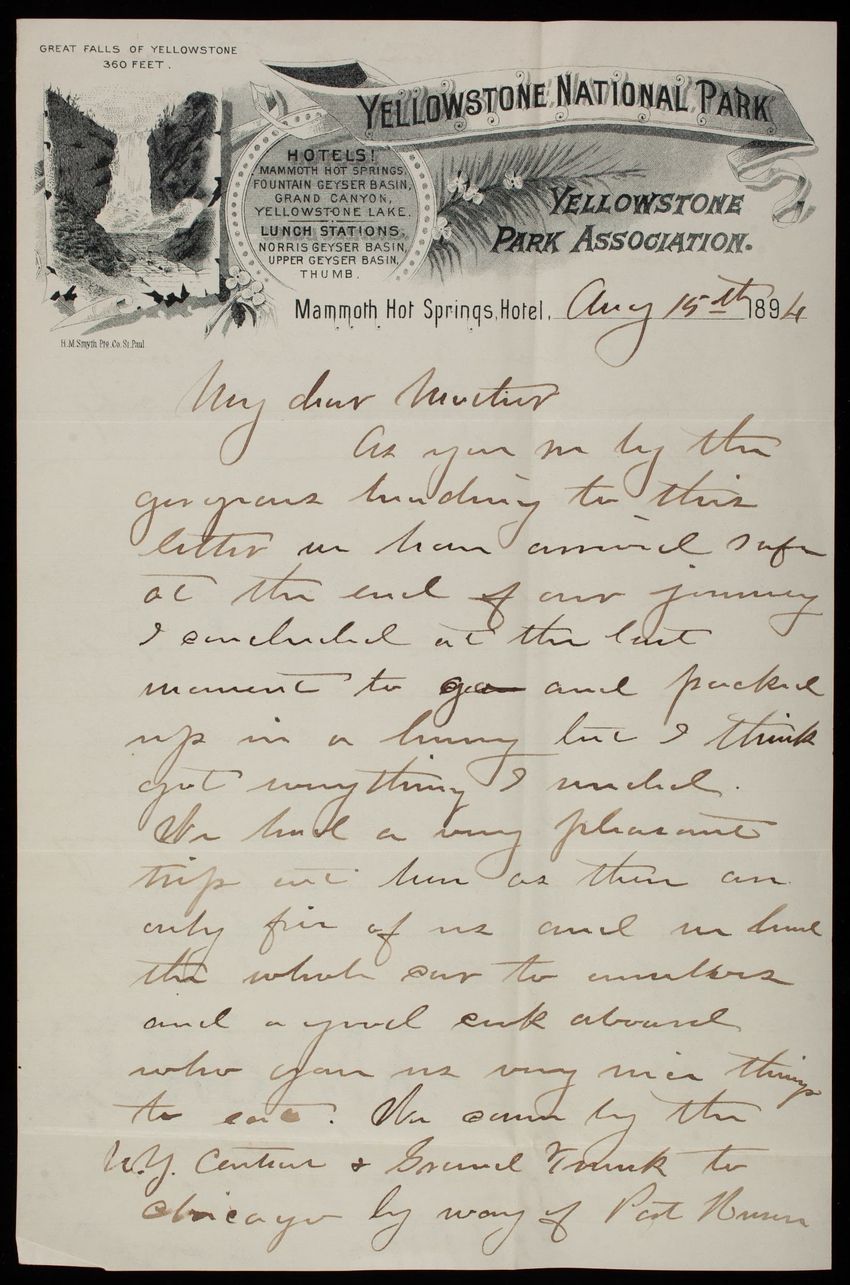 GREAT FALLS OF YELLOWSTONE
360 FEET.
YELLOWSTONE NATIONAL PARK
HOTELS!
MAMMOTH HOT SPRINGS,
FOUNTAIN GEYSER BASIN,
GRAND CANYON,
YELLOWSTONE LAKE.
LUNCH STATIONS,
NORRIS GEYSER BASIN,
UPPER GEYSER BASIN,
THUMB.
YELLOWSTONE
PARK ASSOCIATION.
Mammoth Hot Springs, Hotel, Aug 15th 1894
H.M. Smyth Ptg. Co. St. Paul.
My dear Mother
As you see by the
gorgeous heading to this
letter we have arrived safe
at the end of our journey
I concluded at the last
moment to go and packed
up in a hurry but I think
got everything I needed.
We had a very pleasant
trip out here as there are
only five of us and we had
the whole car to ourselves
and a good cook aboard
who gave us very nice things
to eat. We came by the
N.Y. Central & Grand Trunk to
Chicago by way of Port Huron